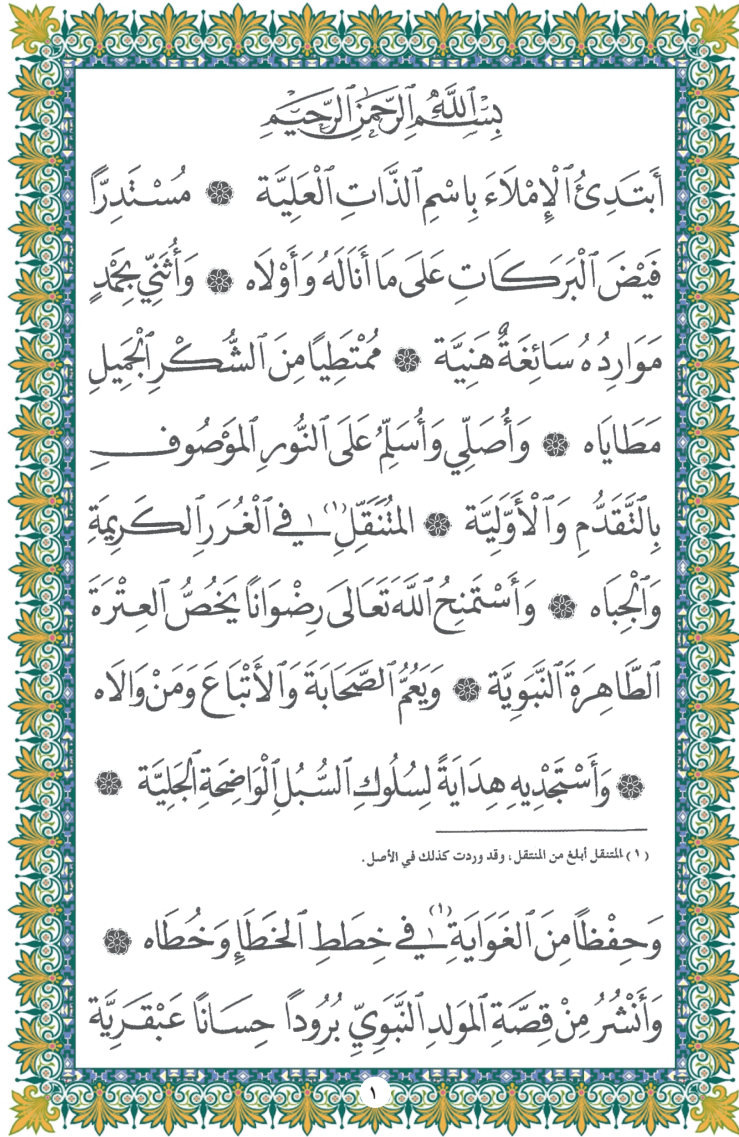 بِسْمِ ٱللَّهِ ٱلرَّحْمَٰنِ ٱلرَّحِيمِ
أَبْتَدِئُ ٱلْإِمْلَاءَ بِاسْمِ ٱلذَّاتِ ٱلْعَلِيَّة ۞ مُسْتَدِرًّا
فَيْضَ ٱلْبَرَكَاتِ عَلَى مَا أَنَالَهُ وَأَوْلَاه ۞ وَأُثَنِّي بِحَمْدٍ
مَوَارِدُهُ سَائِغَةٌ هَنِيَّة ۞ مُمْتَطِيًا مِنَ ٱلشُّكْرِ ٱلْجَمِيلِ
مَطَايَاه ۞ وَأُصَلِّي وَأُسَلِّمُ عَلَى ٱلنُّورِ ٱلمَوْصُوفِ
بِالتَّقَدُّمِ وَٱلْأَوَّلِيَّة ۞ المُتَنَقِّلِ (١) فِي ٱلْغُرَرِ ٱلكَرِيمَةِ
وَٱلْجِبَاه ۞ وَأَسْتَمْنِحُ ٱللَّهَ تَعَالَى رِضْوَانًا يَخُصُّ ٱلعِتْرَةَ
ٱلطَّاهِرَةَ ٱلنَّبَوِيَّة ۞ وَيَعُمُّ ٱلصَّحَابَةَ وَٱلأَتْبَاعَ وَمَنْ وَالَاه
۞ وَأَسْتَجْدِيهِ هِدَايَةً لِسُلُوكِ ٱلسُّبُلِ ٱلْوَاضِحَةِ ٱلجَلِيَّة ۞
(١) المتنقل أبلغ من المنتقل، وقد وردت كذلك في الأصل.
وَحِفْظًا مِنَ ٱلغَوَايَةِ (١) فِي خِطَطِ ٱلخَطَإِ وَخُطَاه ۞
وَأَنْشُرُ مِنْ قِصَّةِ ٱلمَوْلِدِ ٱلنَّبَوِيِّ بُرُودًا حِسَانًا عَبْقَرِيَّة
١